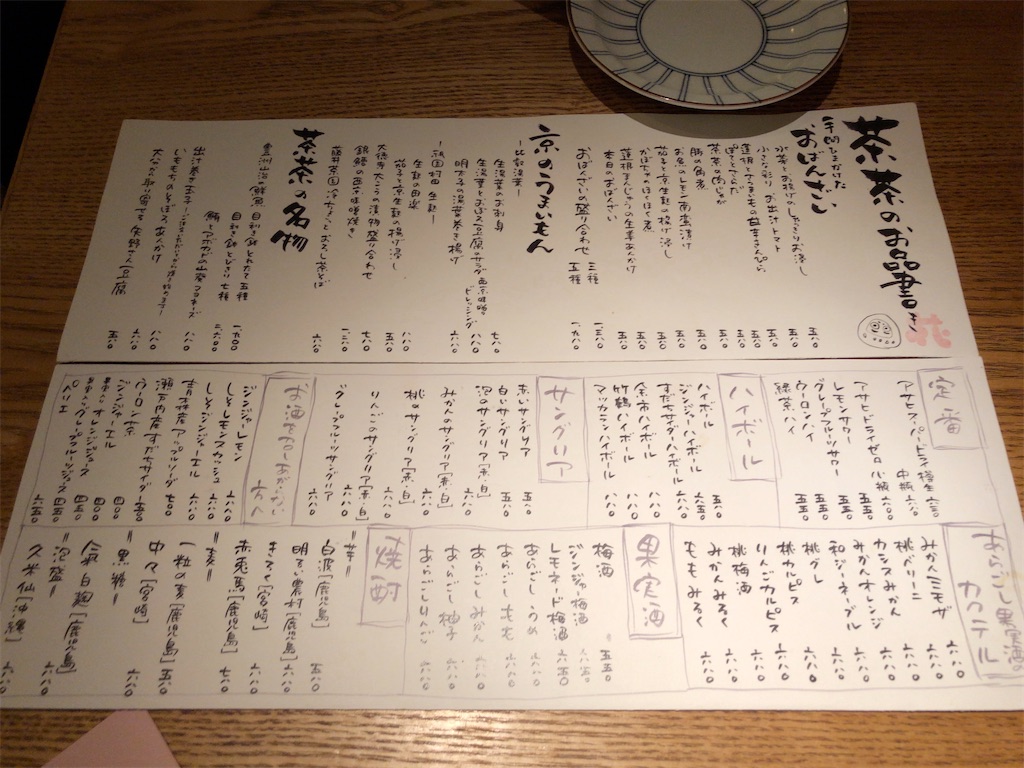 茶茶のお品書き
手間ひまかけた
おばんざい
水菜とお揚げのしゃっきりお浸し 五八〇
小さな彩り お出汁トマト 五八〇
蓮根とさつまいもの甘辛きんぴら 五八〇
ぽてとさらだ 五八〇
茶茶の肉じゃが 五八〇
豚の角煮
お魚のレモン南蛮漬け
茄子と京生麩の揚げ浸し
かぼちゃのほくほく煮 五八〇
蓮根まんじゅうの生姜あんかけ
本日のおばんざい
おばんざいの盛り合わせ 三種 一三八〇
五種 一九八〇
京のうまいもん
ー比叡湯葉ー
生湯葉のお刺身 七八〇
生湯葉とおぼろ豆腐のサラダ 西京味噌のドレッシング 八八〇
明太子の湯葉巻き揚げ 六八〇
ー祇園村田 生麩ー
生麩の田楽 八八〇
茄子と京生麩の揚げ浸し 五八〇
大徳寺 大こうの漬物 盛り合わせ 七八〇
銀鱈の西京味噌焼き 一二八〇
藤井茶園の冷ちょこっとおろし茶そば 六八〇
茶茶の名物
豊洲山治 鮮魚 目利き鉢 とれたて五種 一九〇〇
目利き鉢 とびきり七種 二六〇〇
鮪とアボカドの山葵マヨネーズ 八八〇
いももちのそぼろあんかけ 八八〇
大分から取寄せる 矢野さん豆腐 五八〇
定番
アサヒスーパードライ 樽生 六三〇
中瓶 六八〇
アサヒドライゼロ 小瓶 五五〇
レモンサワー 五五〇
グレープフルーツサワー 五五〇
ウーロンハイ 五五〇
緑茶ハイ 五五〇
ハイボール
ハイボール 五八〇
ジンジャーハイボール 六八〇
すだちサイダーハイボール 六八〇
余市ハイボール 八八〇
竹鶴ハイボール 八八〇
マッカランハイボール 八八〇
サングリア
赤いサングリア 五八〇
白いサングリア 五八〇
泡のサングリア[赤・白] 六八〇
みかんのサングリア[赤・白] 六八〇
桃のサングリア[赤・白] 六八〇
りんごのサングリア[赤・白] 六八〇
グレープフルーツサングリア 六八〇
ジンジャーレモン 六八〇
しそレモンスカッシュ 六八〇
しそジンジャーエール 六八〇
青森産アップルソーダ 七〇〇
瀬戸内産すだちサイダー 五五〇
ウーロン茶 四〇〇
ジンジャーエール 四〇〇
オレンジジュース 四五〇
グレープフルーツジュース 四五〇
ペリエ 六五〇
あらごし果実酒の
カクテル
みかんミモザ 六八〇
桃ベリーニ 六八〇
カシスみかん 六八〇
みかんオレンジ 六八〇
和ジネーブル 六八〇
桃グレ 六八〇
桃カルピス 六八〇
りんごカルピス 六八〇
桃梅酒 六八〇
みかんみるく 六八〇
ももみるく 六八〇
果実酒
梅酒 五五〇
ジンジャー梅酒
レモネード梅酒 六五〇
あらごしうめ 六八〇
あらごしもも 六八〇
あらごしみかん 六八〇
あらごし柚子 六八〇
あらごしりんご 六八〇
焼酎
＝芋＝
白波[鹿児島] 五八〇
明るい農村[鹿児島] 六八〇
きろく[宮崎] 六八〇
赤兎馬[鹿児島] 七八〇
＝麦＝
一粒の麦[鹿児島] 五八〇
中々[宮崎] 六八〇
＝黒糖＝
＝泡盛＝
久米仙[沖縄] 六八〇